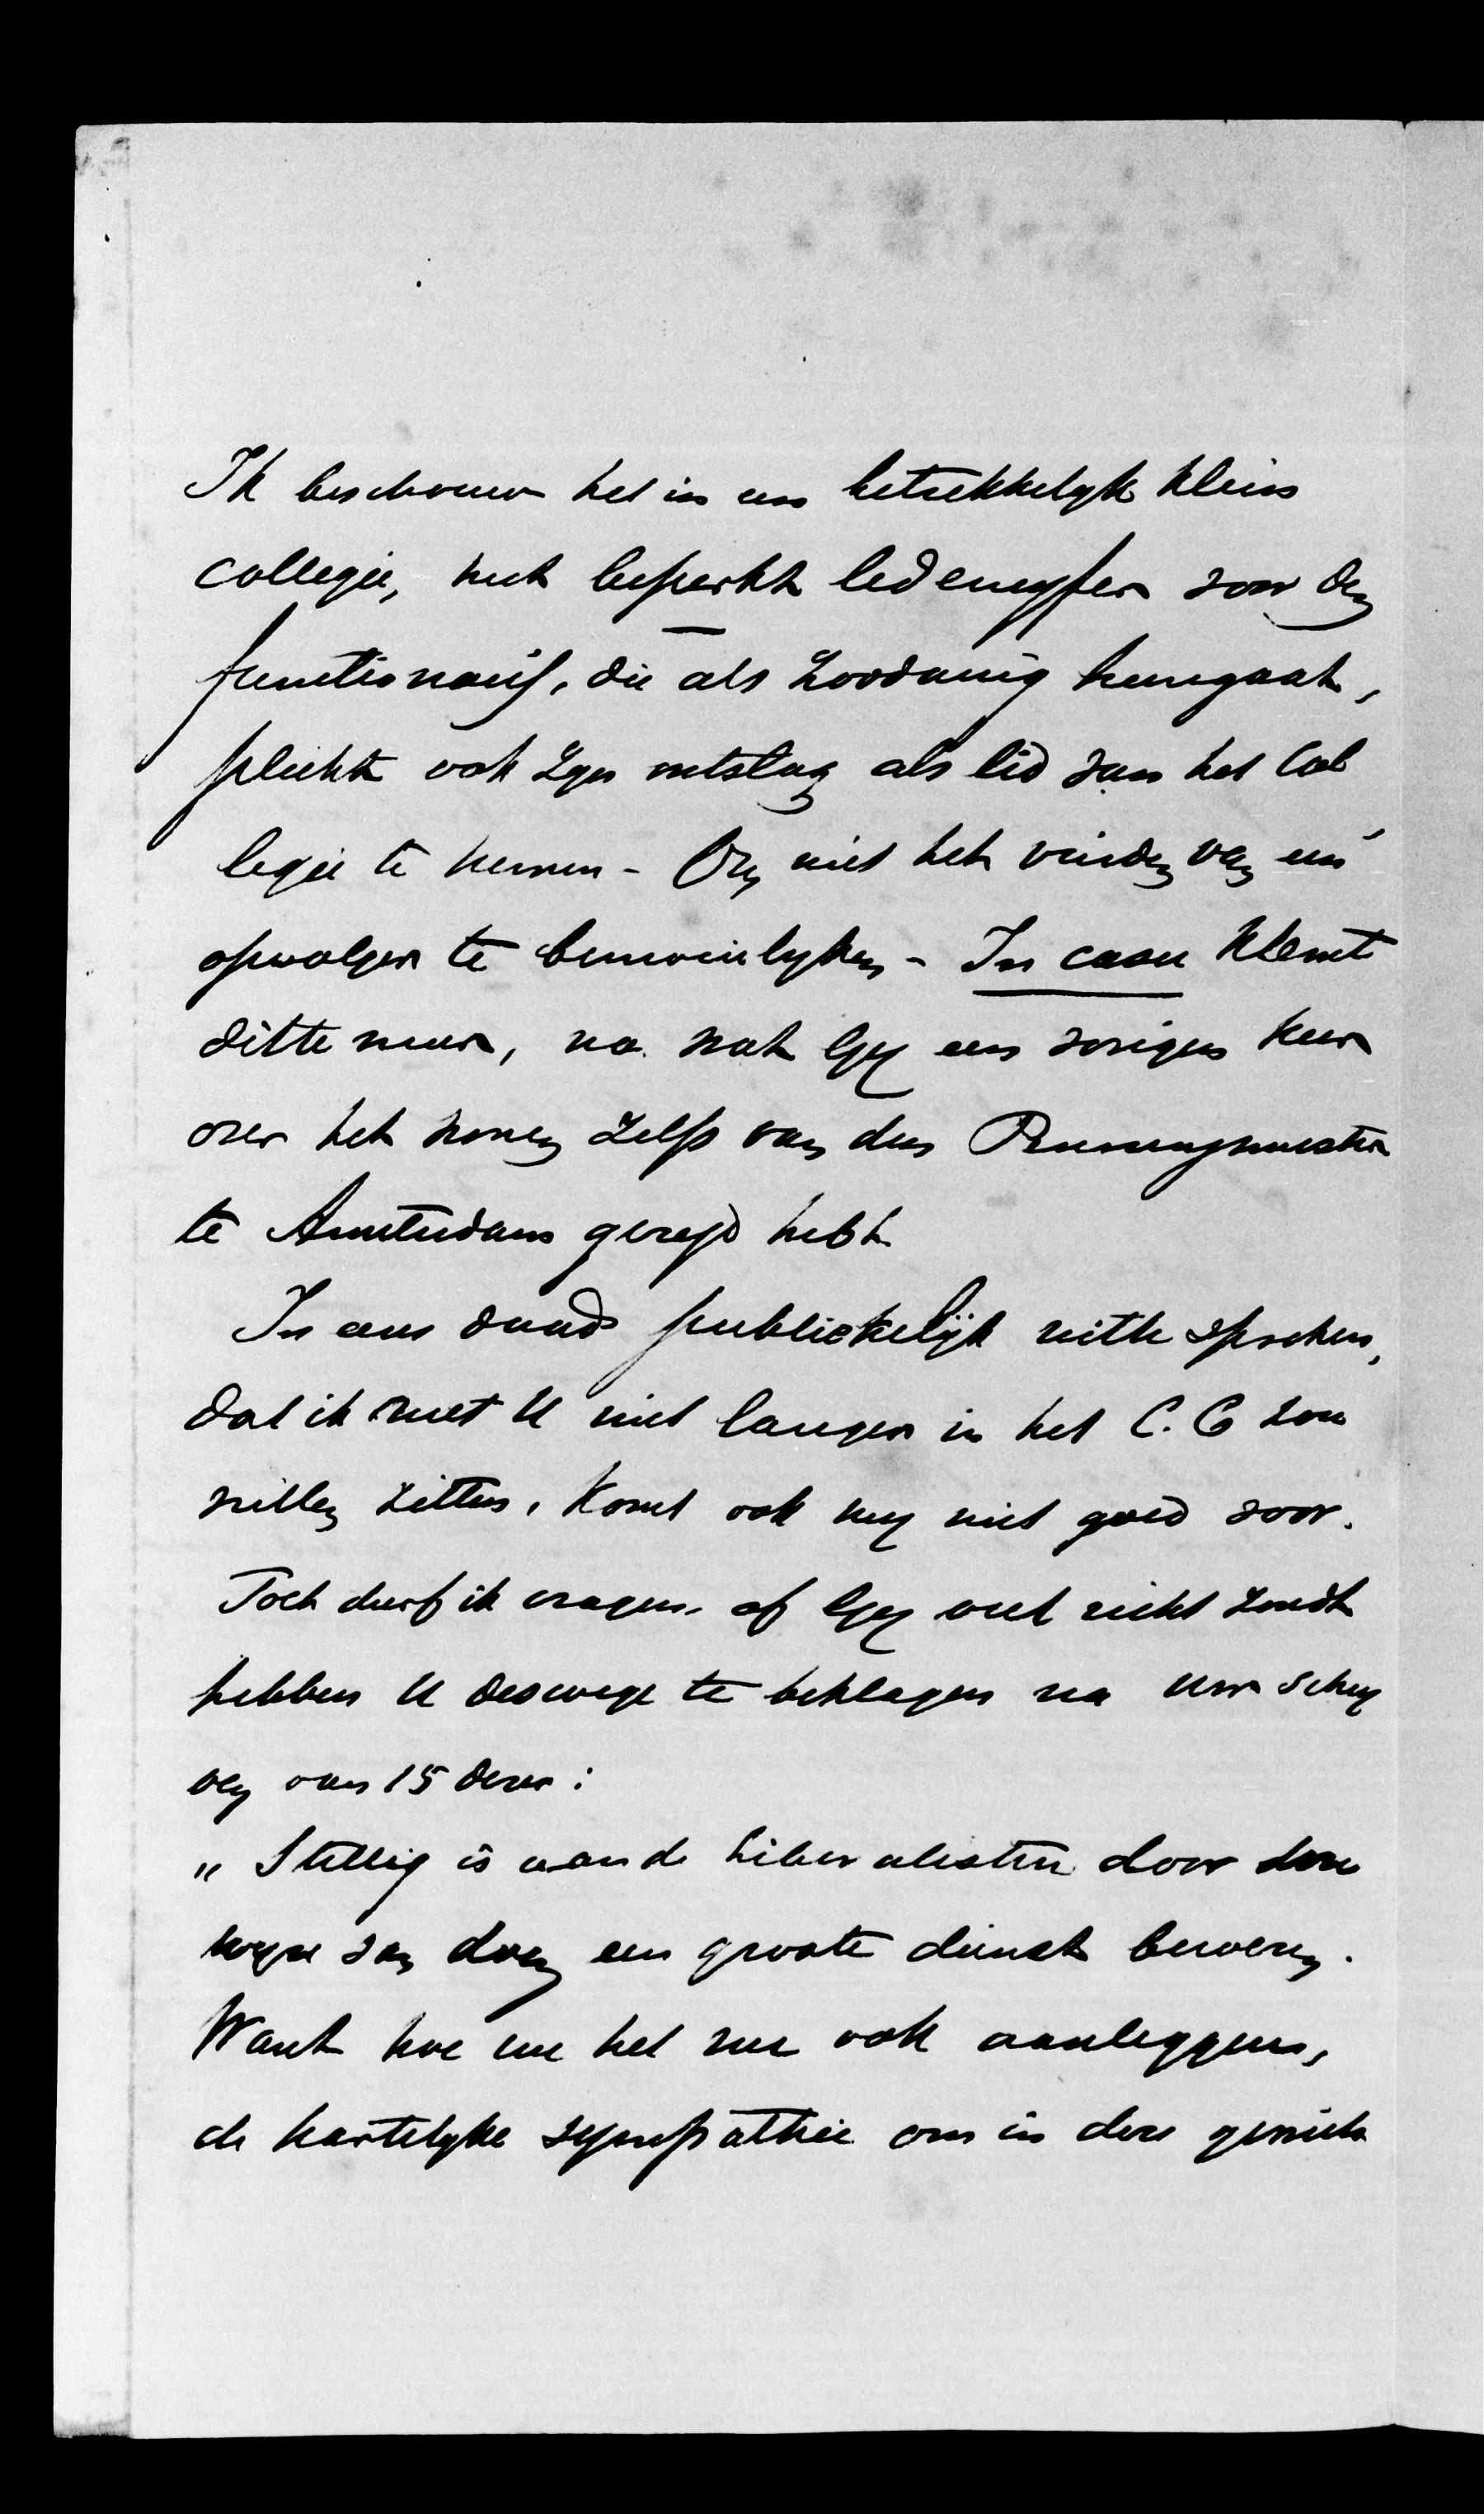 Ik beschouw het in een betrekkelyk klein
collegie, met beperkt ledencyfer voor den
functionaris, die als zoodanig heengaat,
plicht ook zyn ontslag als lid van het Col
legie te nemen - Om niet het vinden van een
opvolger te bemoeielyken - In casu klemt
dit te meer, na wat Gy een vorigen keer
over het wonen zelfs van den Penningmeester
te Amsterdam gezegd hebt
In een daad publiekelijk uit te spreken,
dat ik met U niet langer in het C. C zou
willen zitten, komt ook my niet goed voor.
Toch durf ik vragen, of Gy wel recht zoudt
hebben U deswege te beklagen na Uw schry
ven van 15 dezer:
„ Stellig is aan de Liberalisten door deze
wyze van doen een groote dienst bewezen.
Want hoe we het nu ook aanleggen,
de hartelyke sympathie om in deze